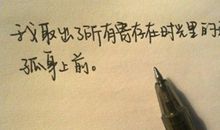 于我取出了所有寄存在时光里的
孤身上前。